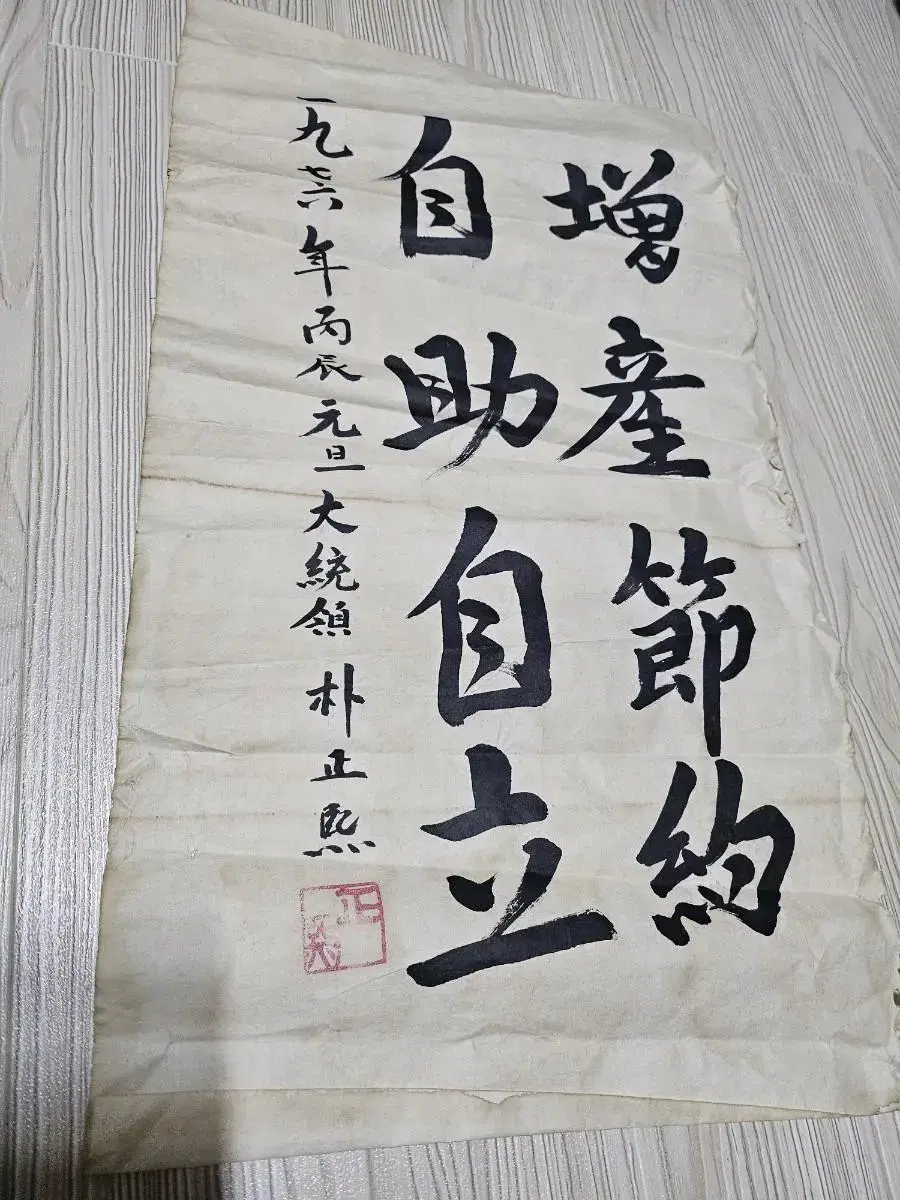 增產節約
自助自立
一九七六年丙辰元旦 大統領 朴正熙